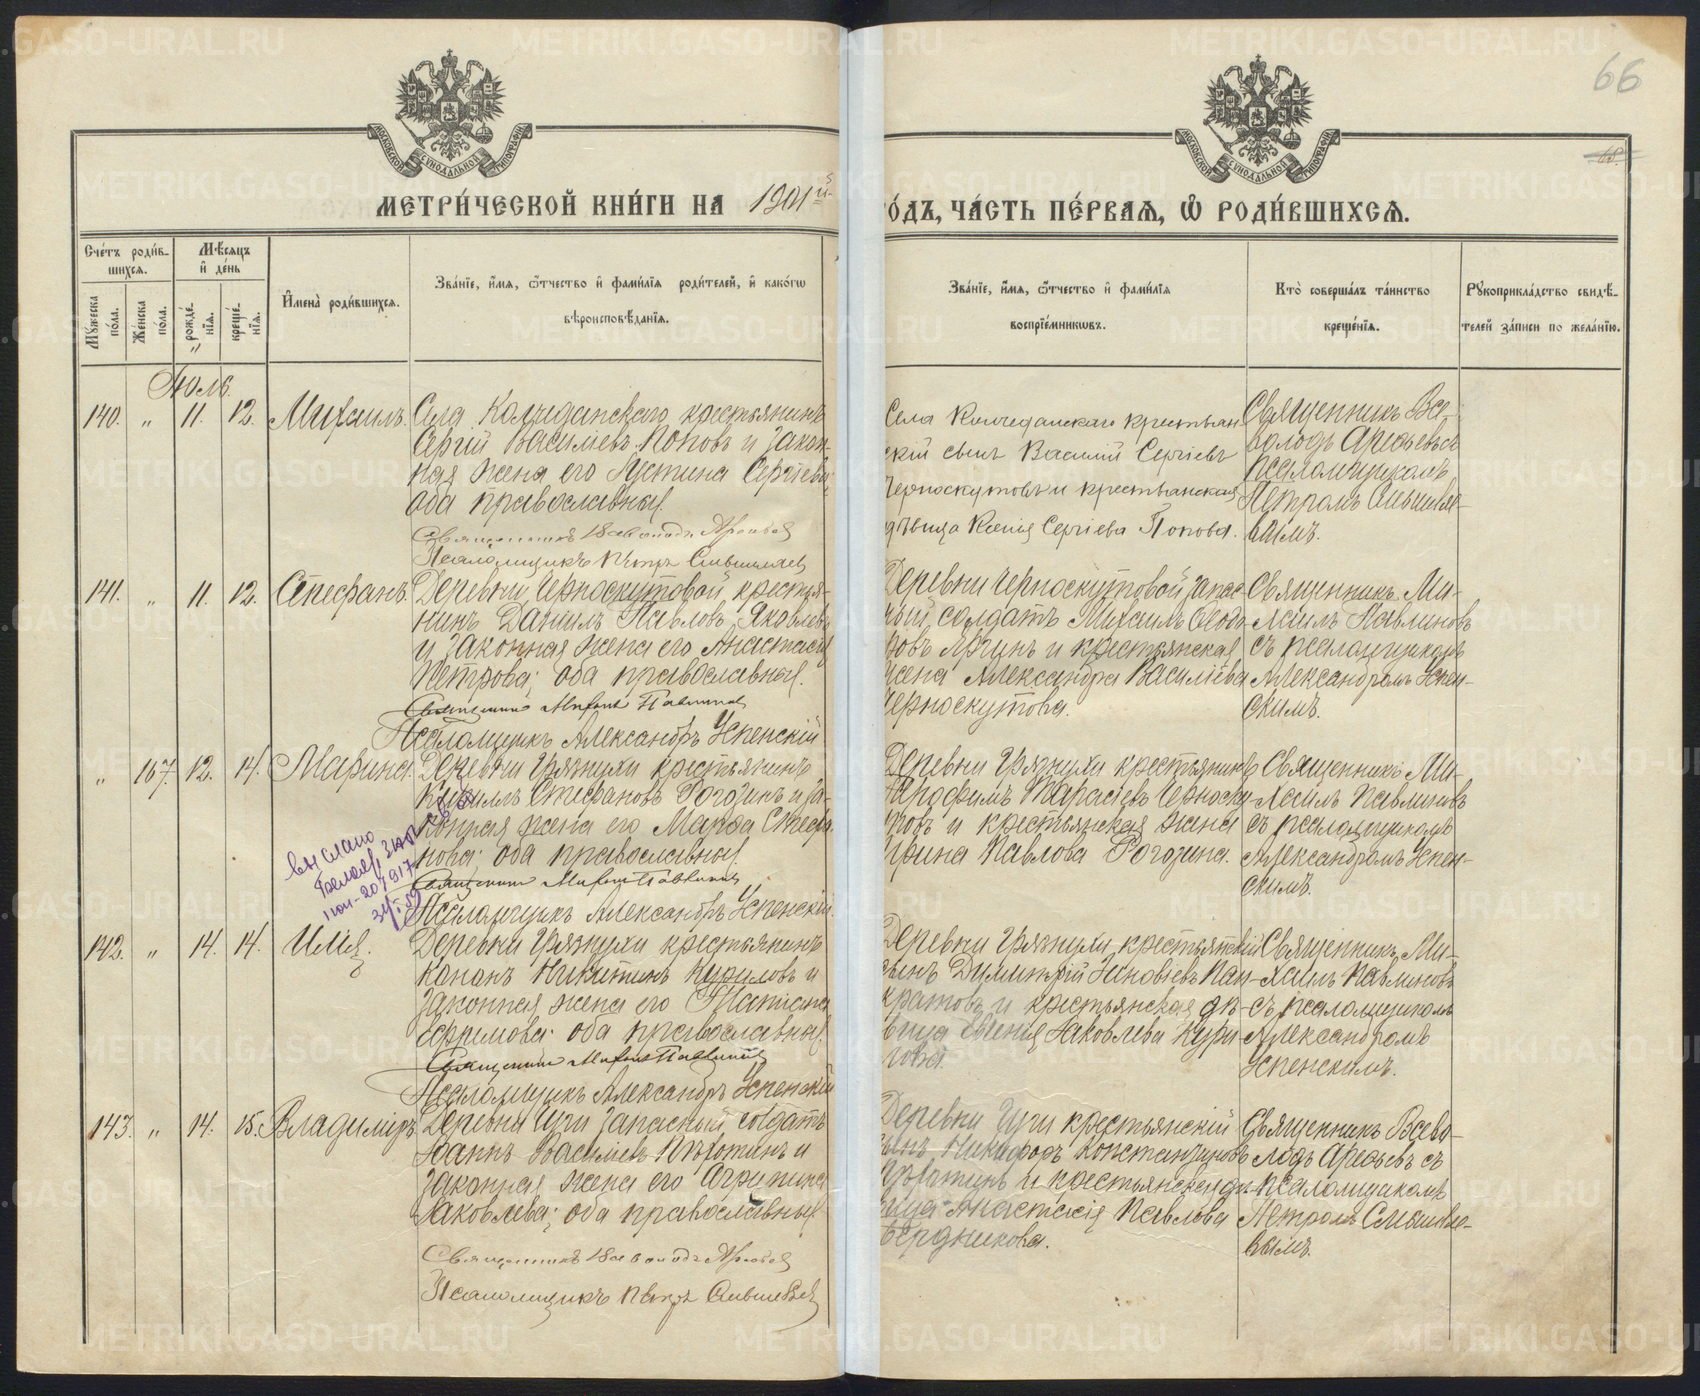 66
68.
МОСКОВСКОЙ СѴНОДАЛЬНОЙ ТИПОГРАФІИ
МОСКОВСКОЙ СѴНОДАЛЬНОЙ ТИПОГРАФІИ
МЕТРИ́ЧЕСКОЙ КНИ́ГИ НА 1901й
ГО́ДЪ, ЧА́СТЬ ПЕ́РВАѦ, Ѽ РОДИ́ВШИХСѦ.
Сче́тъ роди́в-
шихся.
Мѣ́сяцъ
и҆ де́нь
Мꙋ́жеска
по́ла.
Же́нска
по́ла.
рожде́-
нїя.
креще́-
нїя.
И҆мена̀ роди́вшихся.
Зва́нїе, и҆́мя, ѻ҆́тчество и҆ фами́лїя роди́телей, и҆ како́гѡ
вѣроисповѣ́данїя.
Зва́нїе, и҆́мя, ѻ҆́тчество и҆ фами́лїя
воспрїе́мникѡвъ.
Кто̀ соверша́лъ та́инство
креще́нїя.
Рꙋкоприкла́дство свидѣ́-
телей за́писи по жела́нїю.
Іюль.
140. „ 11. 12. Михаилъ.
Села Колчеданскаго крестьянинъ
Сергій Васильевъ Поповъ и закон-
ная жена его Іустина Сергіева
оба православные.
Священникъ Всеволодъ Арефьевъ
Псаломщикъ Петръ
Села Колчеданскаго крестьян-
скій сынъ Василій Сергіевъ
Черноскутовъ и крестьянская
дѣвица Ксенія Сергіева Попова.
Священникъ Все-
володъ Арефьевъ съ
псаломщикомъ
Петромъ
141. „ 11. 12. Стефанъ.
Деревни Черноскутовой крестья-
нинъ Даніилъ Павловъ Яковлевъ
и законная жена его Анастасія
Петрова; оба православные.
Священникъ Михаилъ Павлиновъ
Псаломщикъ Александръ Успенскій
Деревни Черноскутовой запас-
ный солдатъ Михаилъ Ѳеодо-
ровъ и крестьянская
жена Александра Василіева
Черноскутова.
Священникъ Ми-
хаилъ Павлиновъ
съ псаломщикомъ
Александромъ Успен-
скимъ.
„ 167. 12. 14. Марина.
Деревни Грязнухи крестьянинъ
Кириллъ Стефановъ Рогозинъ и за-
конная жена его Марѳа Стефа-
нова; оба православные.
Священникъ Михаилъ Павлиновъ
Псаломщикъ Александръ Успенскій.
выслано
Деревни Грязнухи крестьянинъ
Трофимъ Тарасіевъ Черноску-
товъ и крестьянская жена
Ирина Павлова Рогозина.
Священникъ Ми-
хаилъ Павлиновъ
съ псаломщикомъ
Александромъ Успен-
скимъ.
142. „ 14. 14. Илія.
Деревни Грязнухи крестьянинъ
Кононъ Никитинъ и
законная жена его Татіана
Ефимова; оба православные.
Священникъ Михаилъ Павлиновъ
Псаломщикъ Александръ Успенскій
Деревни Грязнухи крестьянскій
сынъ Димитрій Зиновьевъ Пан-
кратовъ и крестьянская дѣ-
вица Евгенія Яковлева

Священникъ Ми-
хаилъ Павлиновъ
съ псаломщикомъ
Александромъ
Успенскимъ.
143. „ 14. 15. Владиміръ
Деревни запасный солдатъ
Іоаннъ Василіевъ и
законная жена его Агрипина
Яковлева; оба православные.
Священникъ Всеволодъ Арефьевъ
Псаломщикъ Петръ
Деревни крестьянскій
сынъ Никифоръ Константиновъ
и крестьянская дѣ-
вица Анастасія Павлова
Бердникова.
Священникъ Всево-
лодъ Арефьевъ съ
псаломщикомъ
Петромъ
METRIKI.GASO-URAL.RU